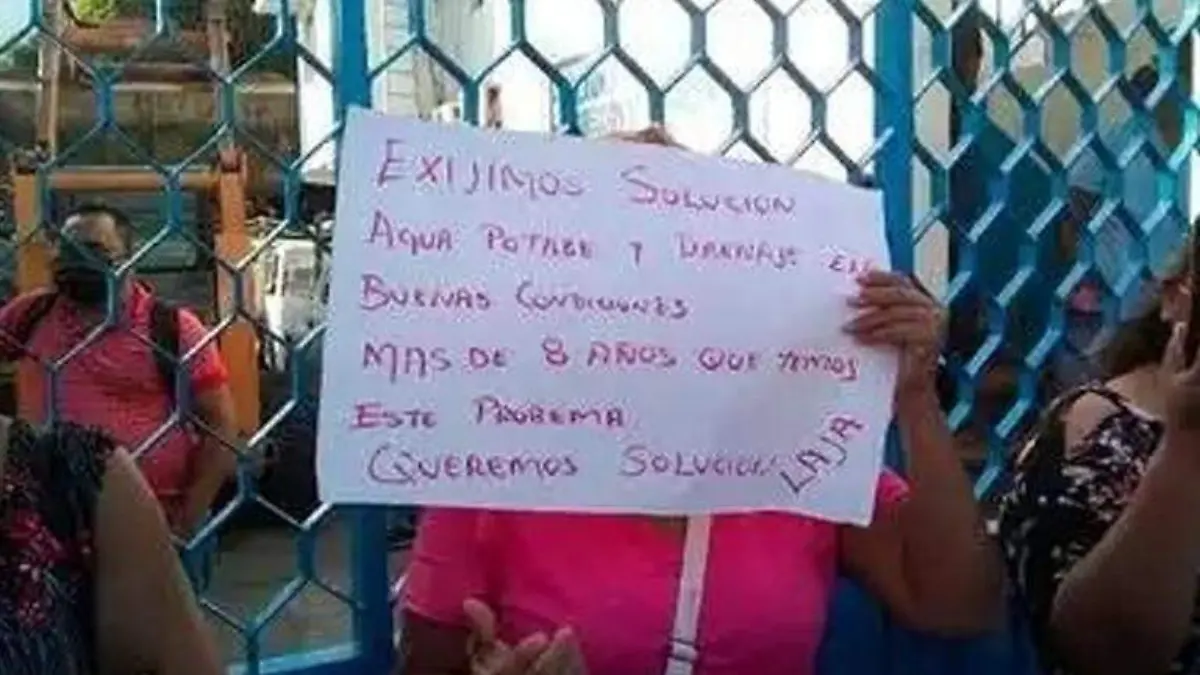 EXIJIMOS SOLUCION
AQUA POTABE Y DRENAJE EN
BUENAS CONDICIONES
MAS DE 8 AÑOS QUE TEMOS
ESTE PROBEMA
QUEREMOS SOLUCION
LAJA